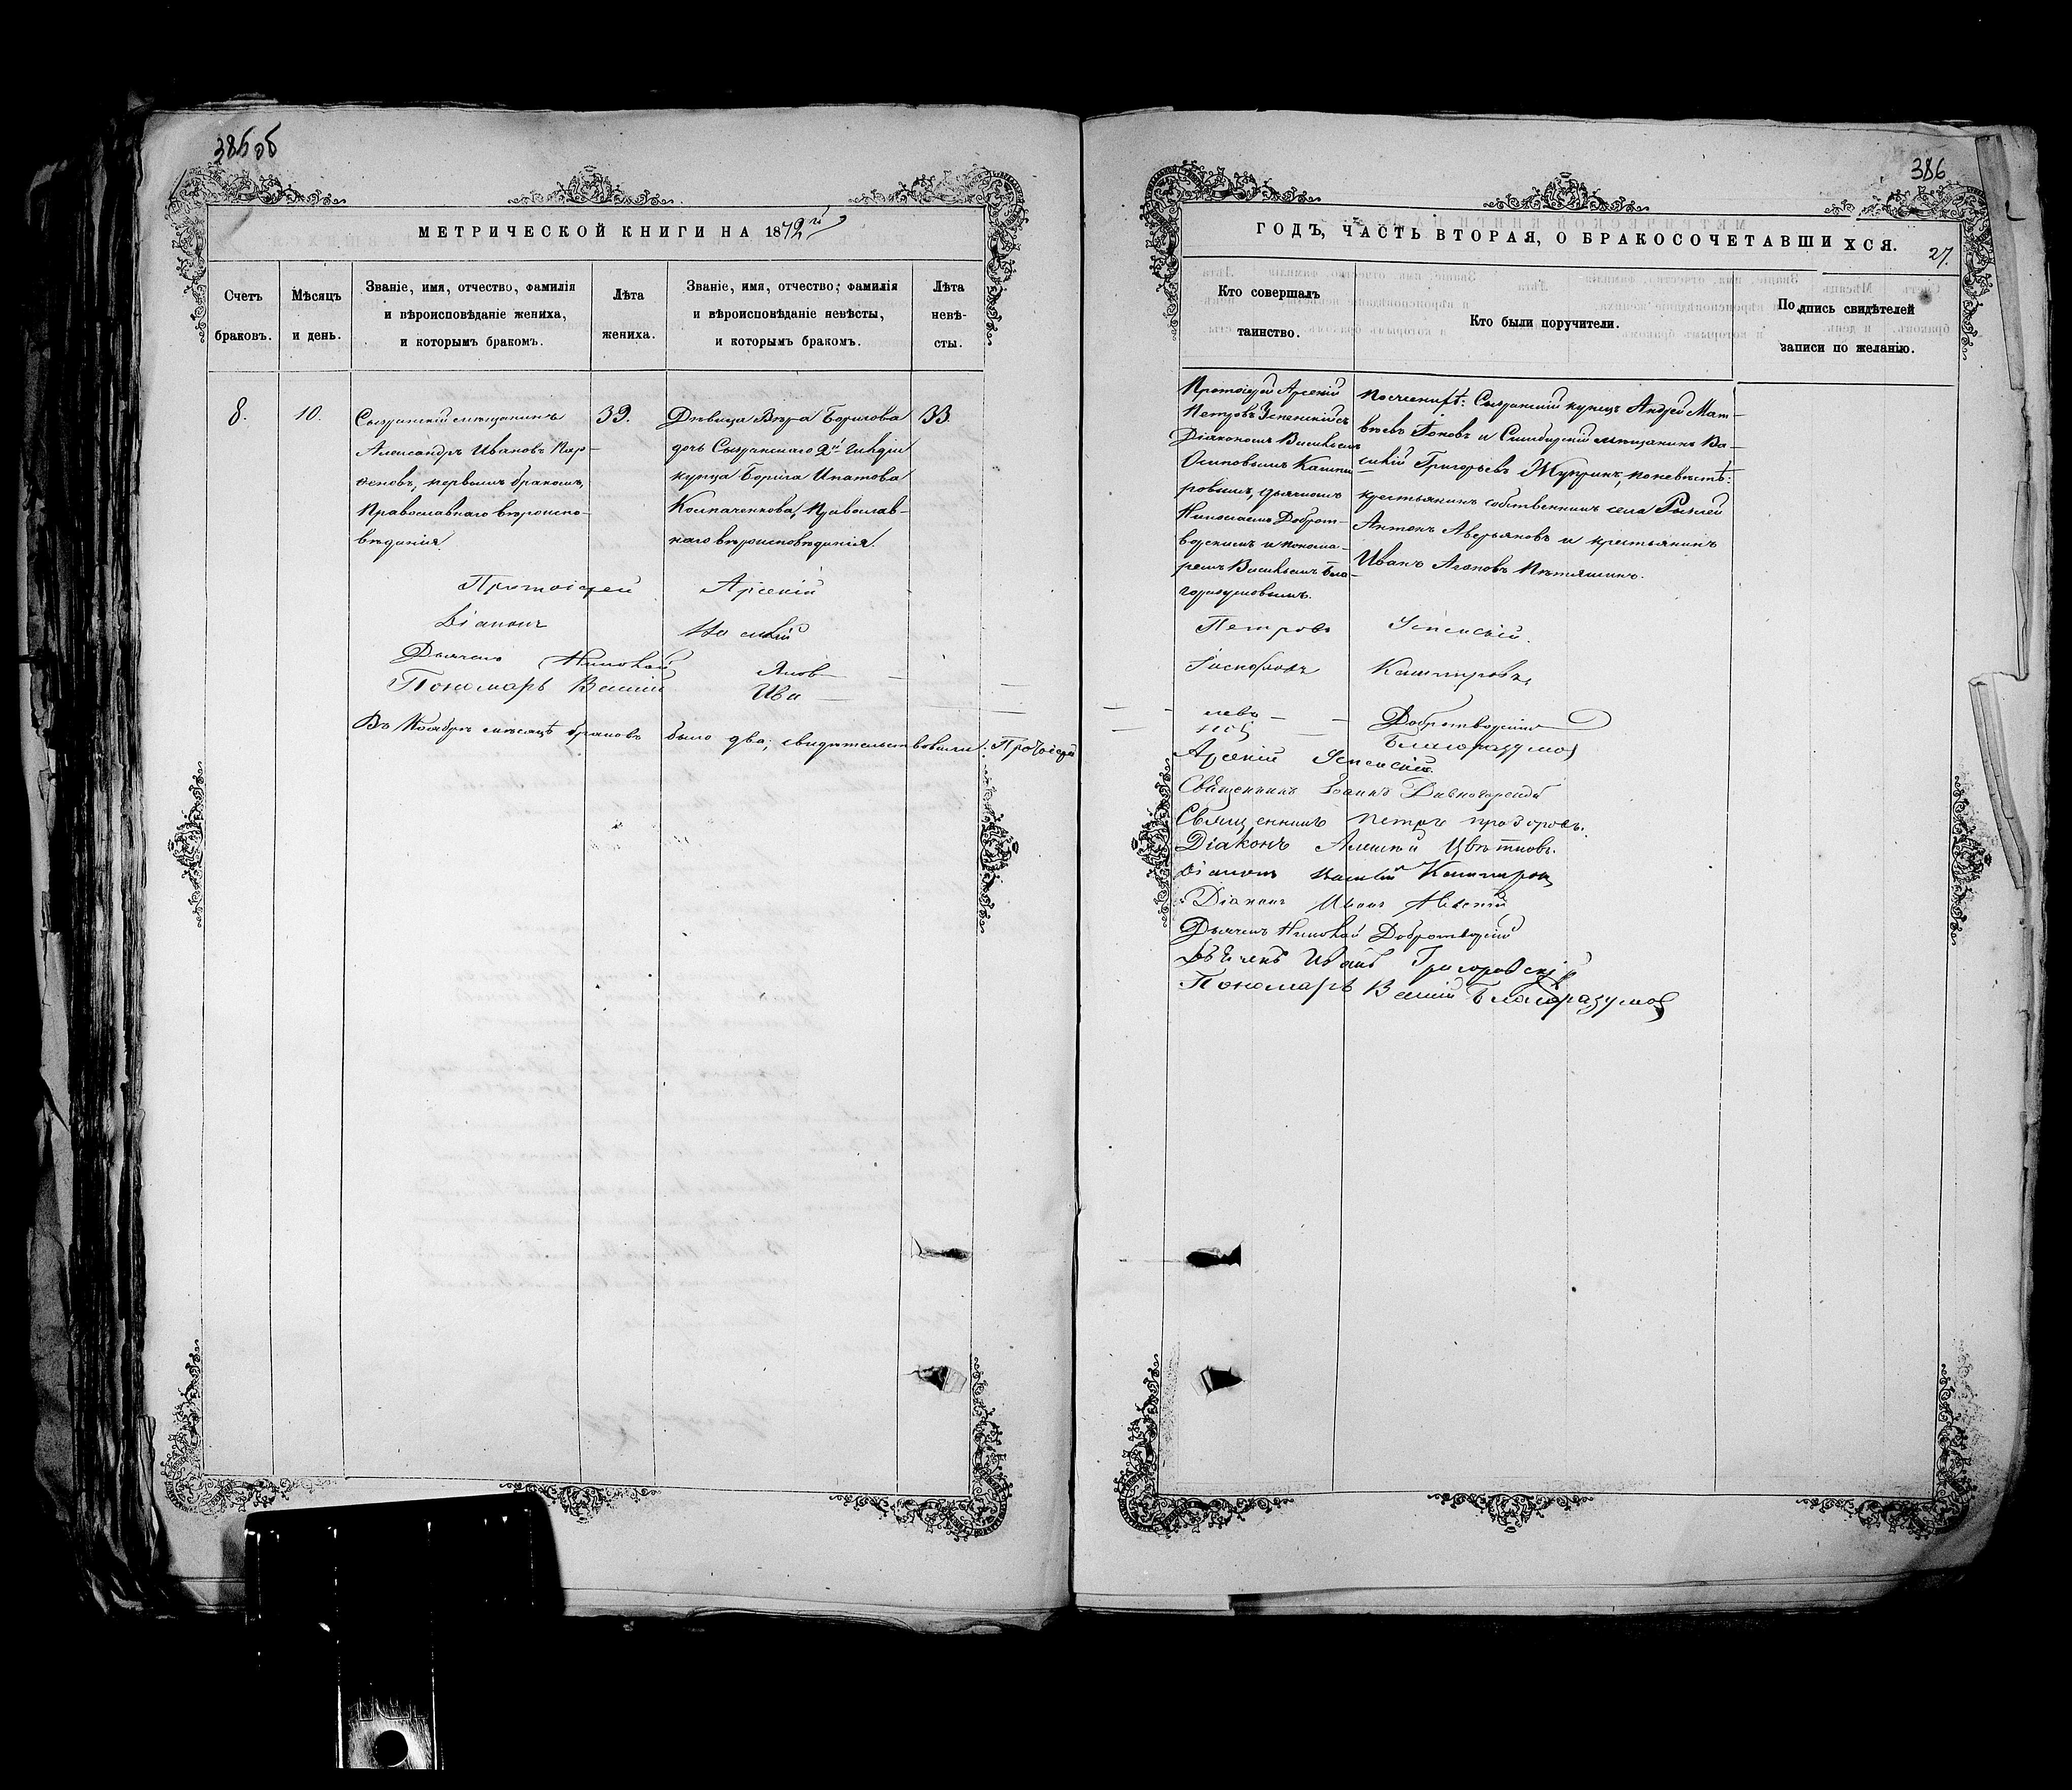 385об
МЕТРИЧЕСКОЙ КНИГИ НА 1872й
Счетъ браковъ.
Мѣсяцъ и день.
Званіе, имя, отчество, фамилія
и вѣроисповѣданіе жениха,
и которымъ бракомъ.
Лѣта жениха.
Званіе, имя, отчество, фамилія
и вѣроисповѣданіе невѣсты,
и которымъ бракомъ.
Лѣта невѣ-
сты.
8.
10.
Сызранскій мѣщанинъ
Александръ Ивановъ Кар-
первымъ бракомъ,
Православнаго вѣроиспо-
вѣданія.
39.
Дѣвица Вѣра Борисова
дочь Сызранскаго 2й гильдіи
купца Бориса Ипатова
Колпаченкова, Православ-
наго вѣроисповѣданія.
33.
Протоіерей Арсеній
Діаконъ Василій
Дьячекъ Николай Яков-
Пономарь Василій Ива-
Въ Ноябрѣ мѣсяцѣ браковъ было два; свидѣтельствовали: Протоіерей
386
ГОДЪ, ЧАСТЬ ВТОРАЯ, О БРАКОСОЧЕТАВШИХСЯ.
27.
Кто совершалъ
таинство.
Кто были поручители.
Подпись свидѣтелей
записи по желанію.
Протоіерей Арсеній
Петровъ Успенскій съ
Діакономъ Васильемъ
Осиповымъ Кашпи-
ровымъ, дьячкомъ
Николаемъ Доброт-
ворскимъ и понома-
ремъ Васильемъ Бла-
горазумовымъ.
по женихѣ: Сызранскій купецъ Андрей Мат-
вѣевъ Поповъ и Симбирскій мѣщанинъ Ва-
силій Григорьевъ Жупринъ, по невѣстѣ:
крестьянинъ собственникъ села
Антонъ Аверьяновъ и крестьянинъ
Иванъ Агаповъ
Петровъ Успенскій.
Іосифовъ Кашпировъ,
левъ Добротворскій
новъ Благоразумов
Арсеній Успенскій
Священникъ Іоаннъ Дивногорскій
Священникъ Петръ Прозоровъ.
Діаконъ Алексѣй Цвѣтковъ.
Діаконъ Василій Кашпиров
Діаконъ Иванъ Невскій
Дьячекъ Николай Добротворскій
Дьячекъ Иванъ Григоровскій
Пономарь Василій Благоразумов